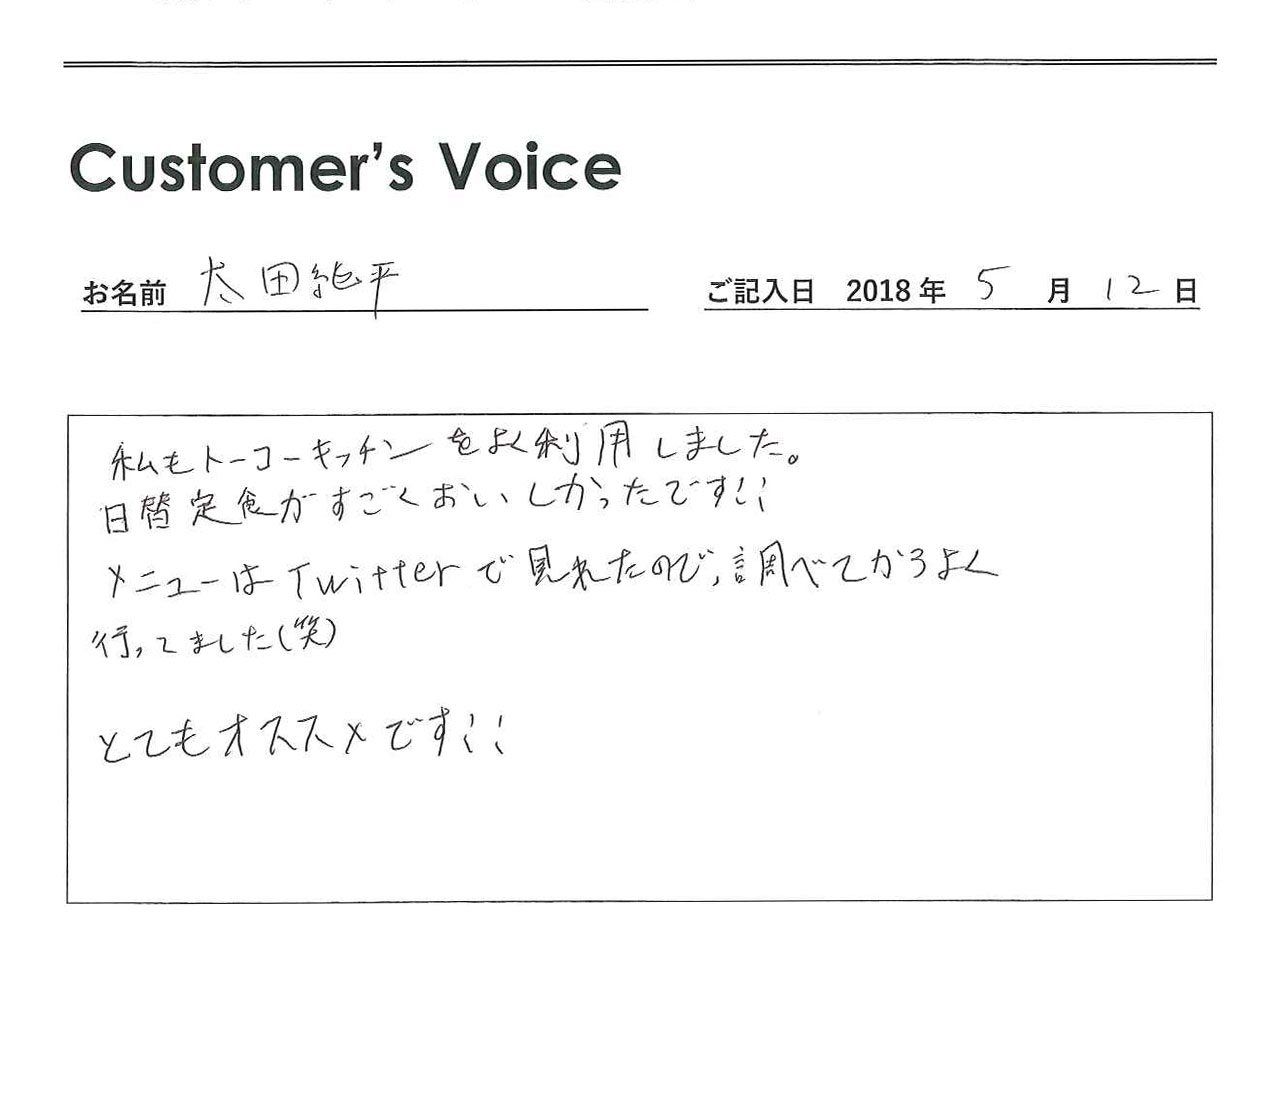 Customer's Voice
お名前 太田純平
ご記入日 2018年 5月 12日
私もトーコーキッチンをよく利用しました。
日替定食がすごくおいしかったです!!
メニューはTwitterで見れたので、調べてからよく
行ってました(笑)
とてもオススメです!!